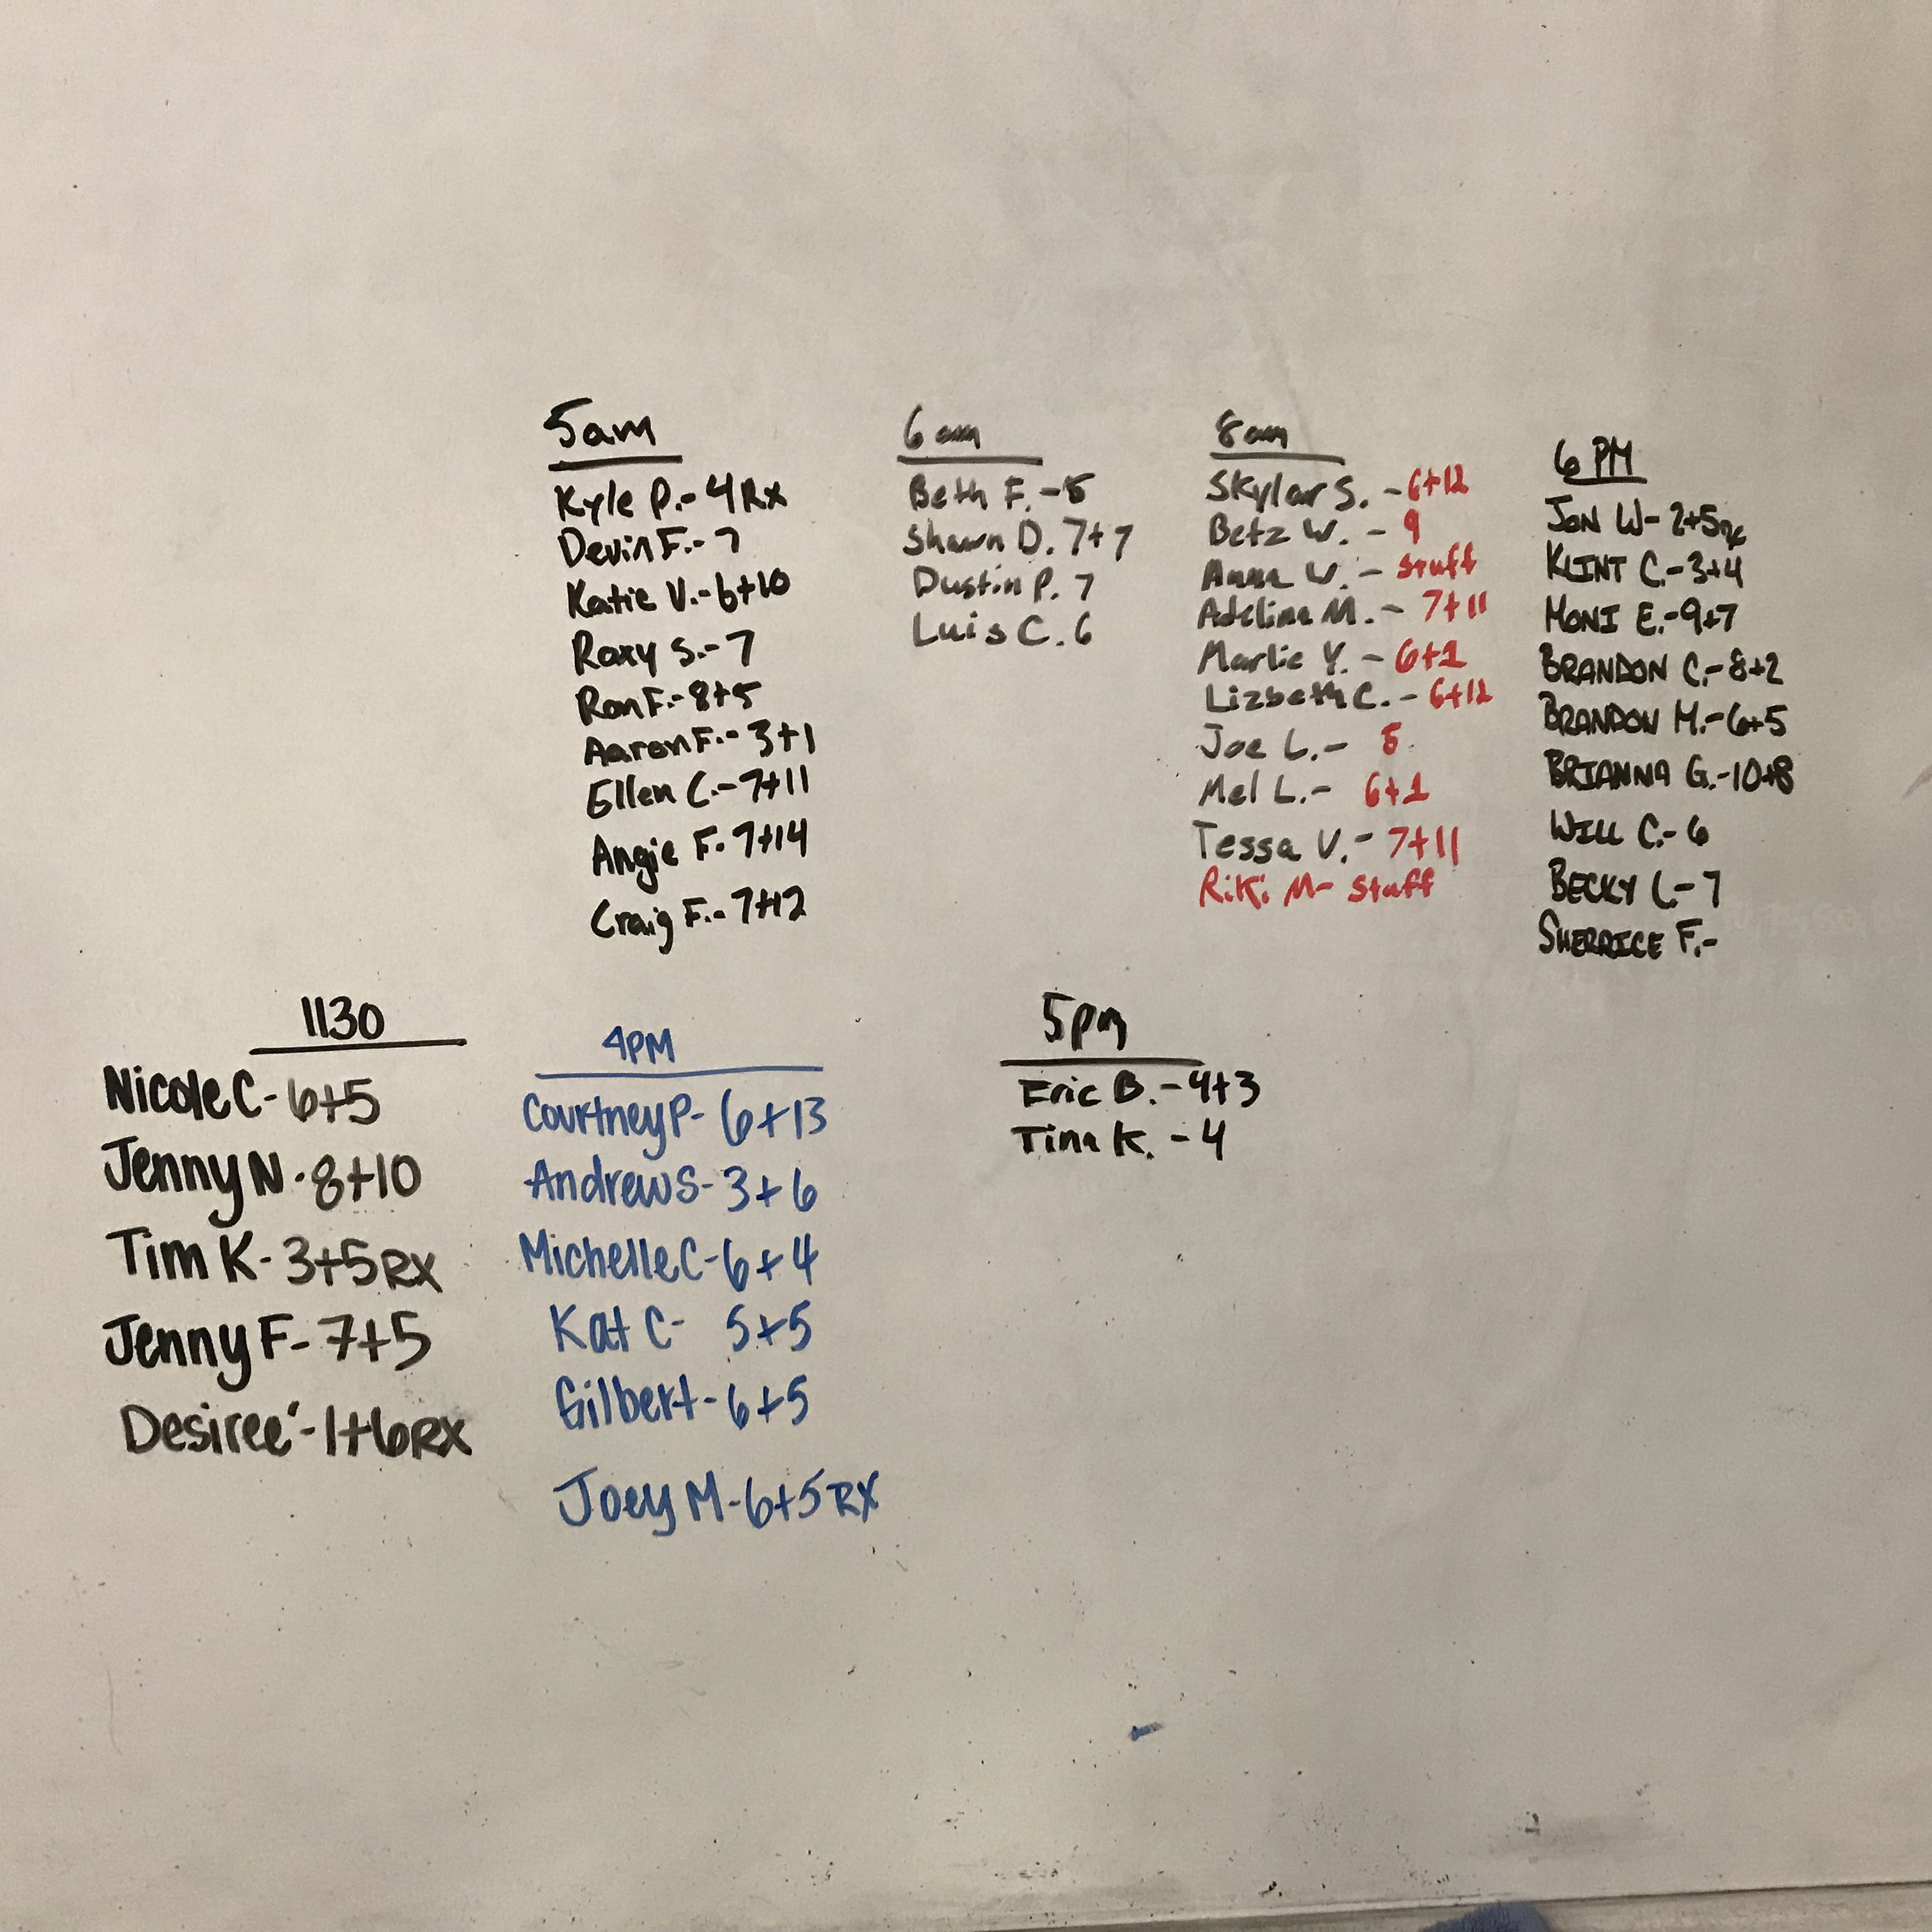 5am
Kyle P.- 4 Rx
Devin F.- 7
Katie V.- 6+10
Roxy S.- 7
Ron F.- 8+5
Aaron F.- 3+1
Ellen C.- 7+11
Angie F. 7+14
Craig F.- 7+12
6am
Beth F. - 5
Shawn D. 7+7
Dustin P. 7
Luis C. 6
8am
Skylar S. - 6+12
Betz W. - 9
Anna W. - stuff
Adelina M. - 7+11
Marlie Y. - 6+1
Lizbeth C. - 6+12
Joe L.- 5
Mel L.- 6+1
Tessa V.- 7+11
Riki M- stuff
6 PM
JON W- 2+5 Rx
KLINT C.-3+4
MONI E.-9+7
BRANDON C.-8+2
BRANDON M.-6+5
BRIANNA G.-10+8
WILL C.- 6
BECKY L-7
SHERRICE F.-
1130
Nicole C- 6+5
Jenny N - 8+10
Tim K- 3+5 RX
Jenny F- 7+5
Desireé -1+6 RX
4PM
Courtney P- 6+13
Andrew S- 3+6
Michelle C-6+4
Kat C- 5+5
Gilbert- 6+5
Joey M-6+5 RX
5pm
Eric B. - 4+3
Tina K. - 4